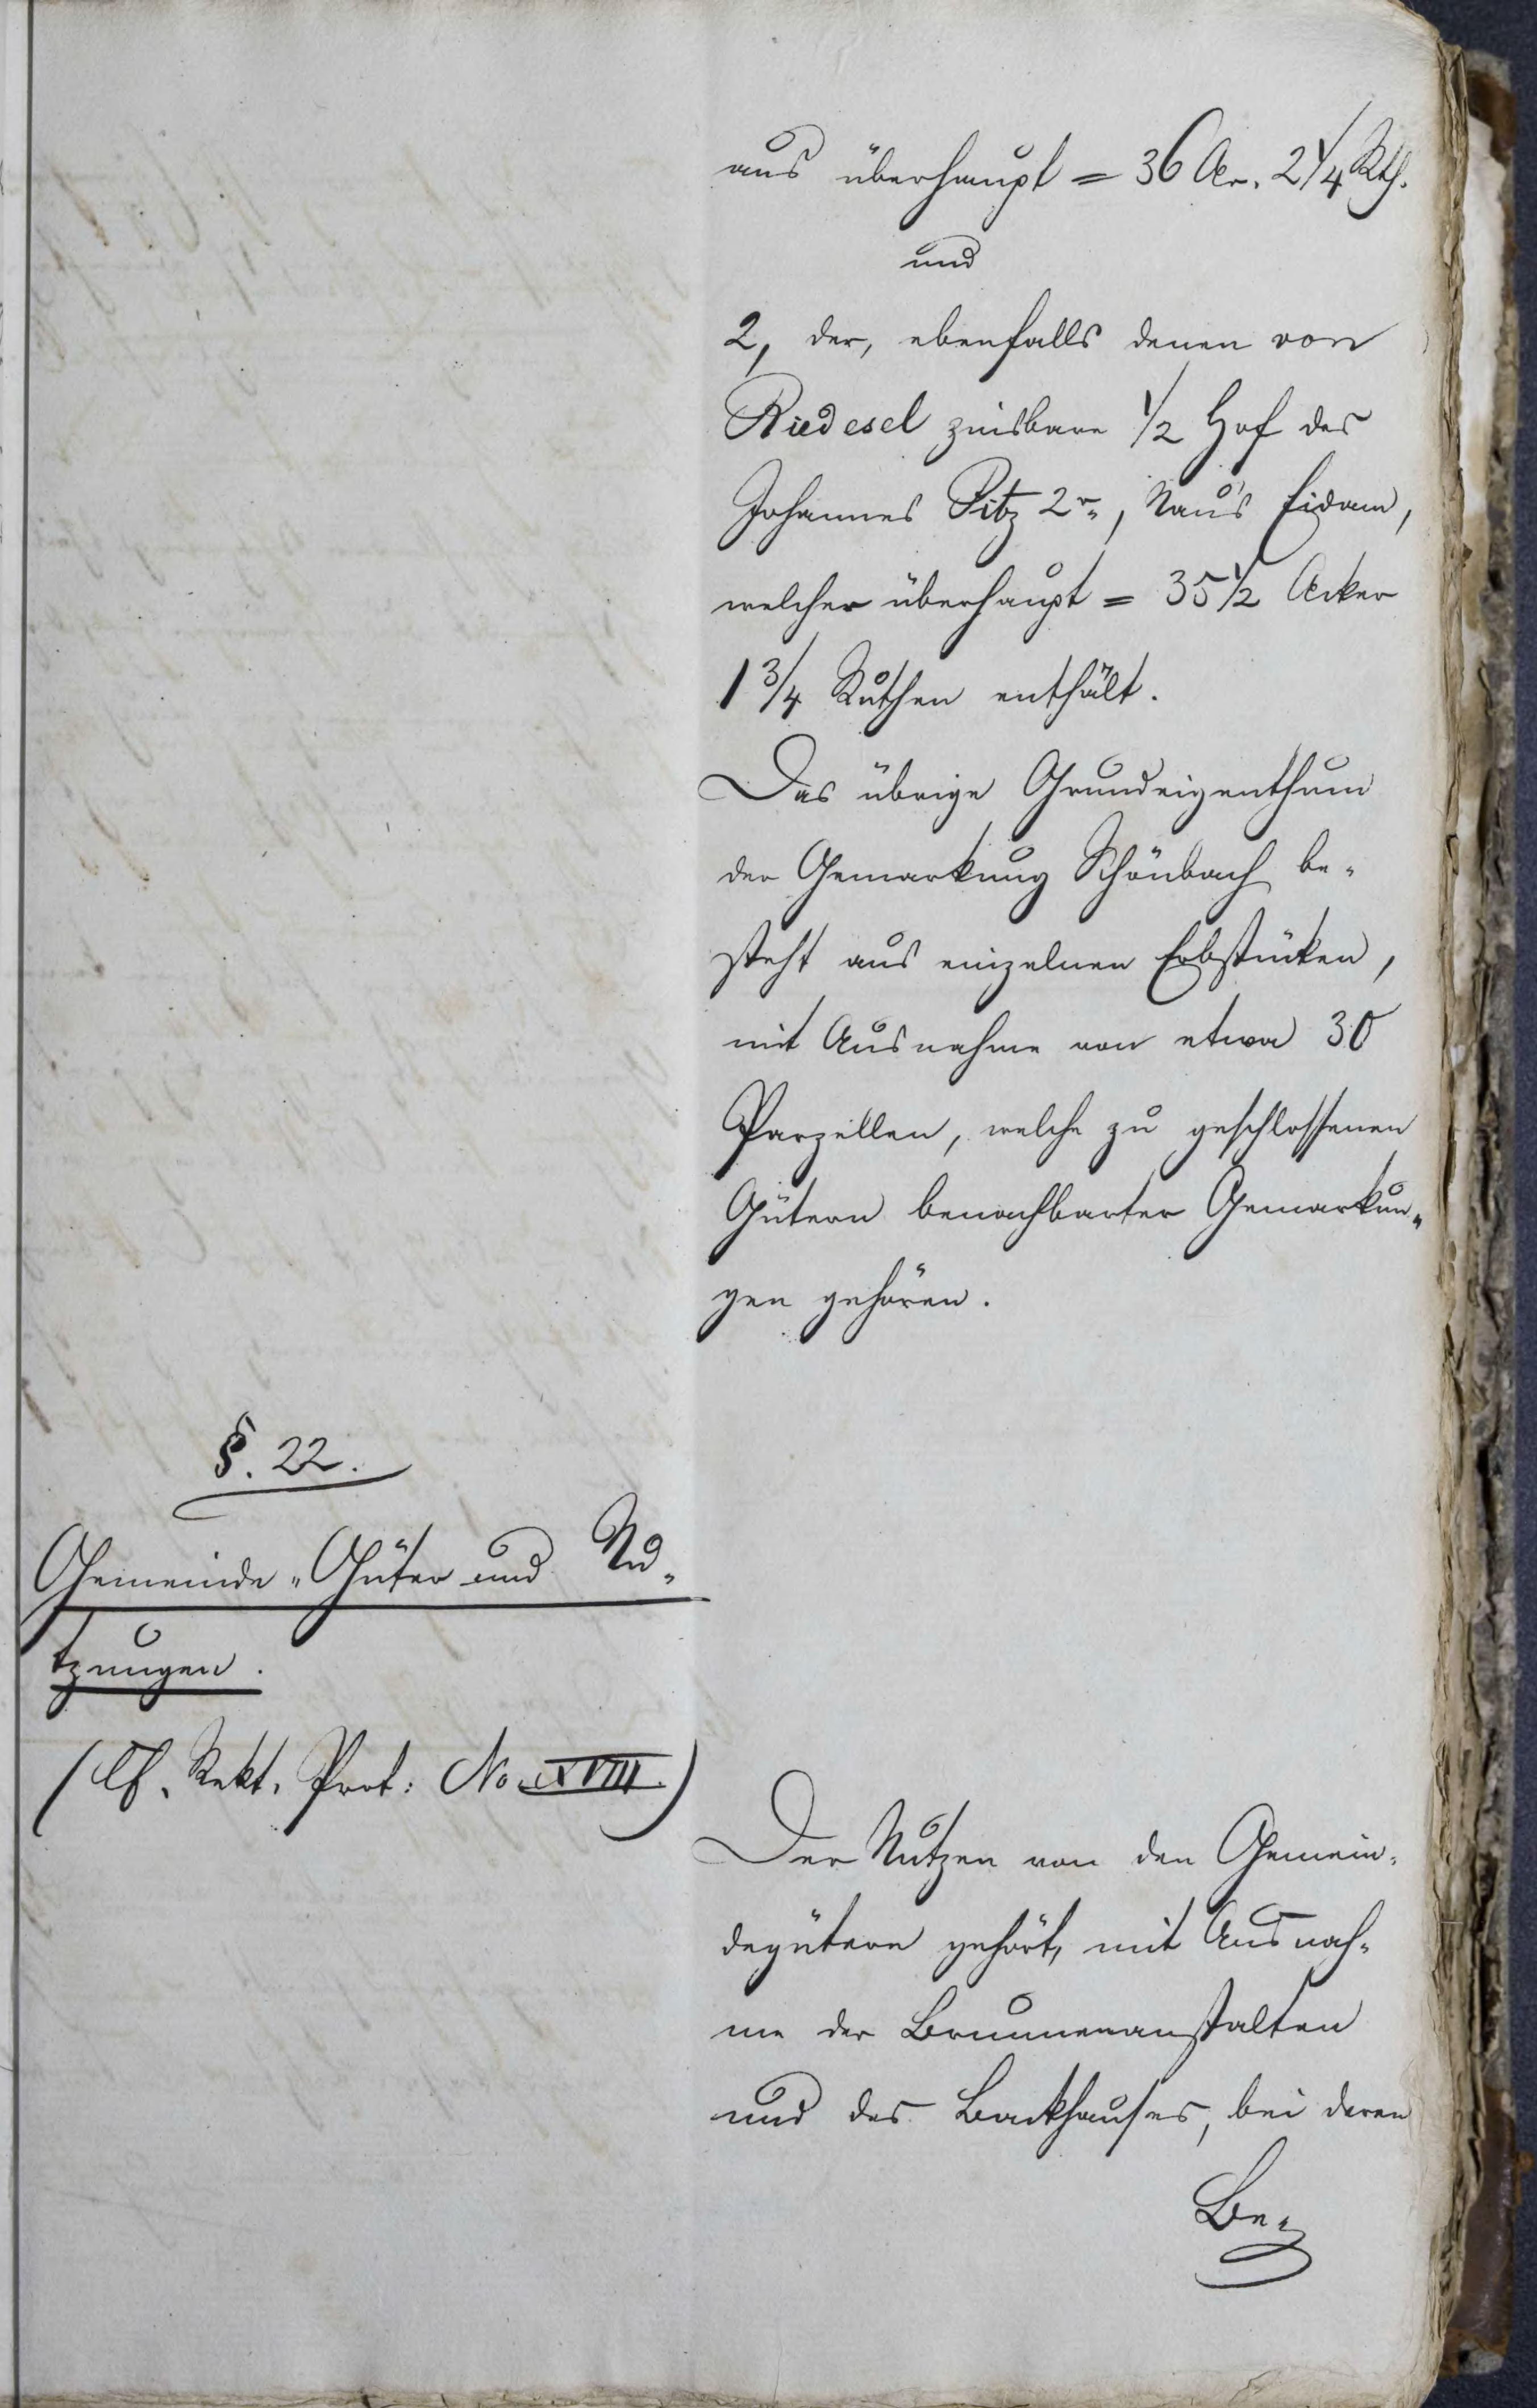 aus überhaupt = 36 Ar. 2 1/4 Rth.
und
2, der, ebenfalls denen von
Riedesel zinsbare 1/2 Hof des
Johannes Pitz 2r., Nau's Eidam,
welcher überhaupt = 35 1/2 Acker
1 3/4 Ruthen enthält.
Das übrige Grundeigenthum
der Gemarkung Schönbach be-
steht aus einzelnen Erbstücken,
mit Ausnahme von etwa 30
Parzellen, welche zu geschlossenen
Gütern benachbarter Gemarkun-
gen gehören.
§. 22.
Gemeinde-Güter und Nu-
tzungen.
(Cf. Rekt. Prot: No XVIII.)
Der Nutzen von den Gemein-
degütern gehört, mit Ausnah-
me der Brunnenanstalten
und des Backhauses, bei deren
Be-